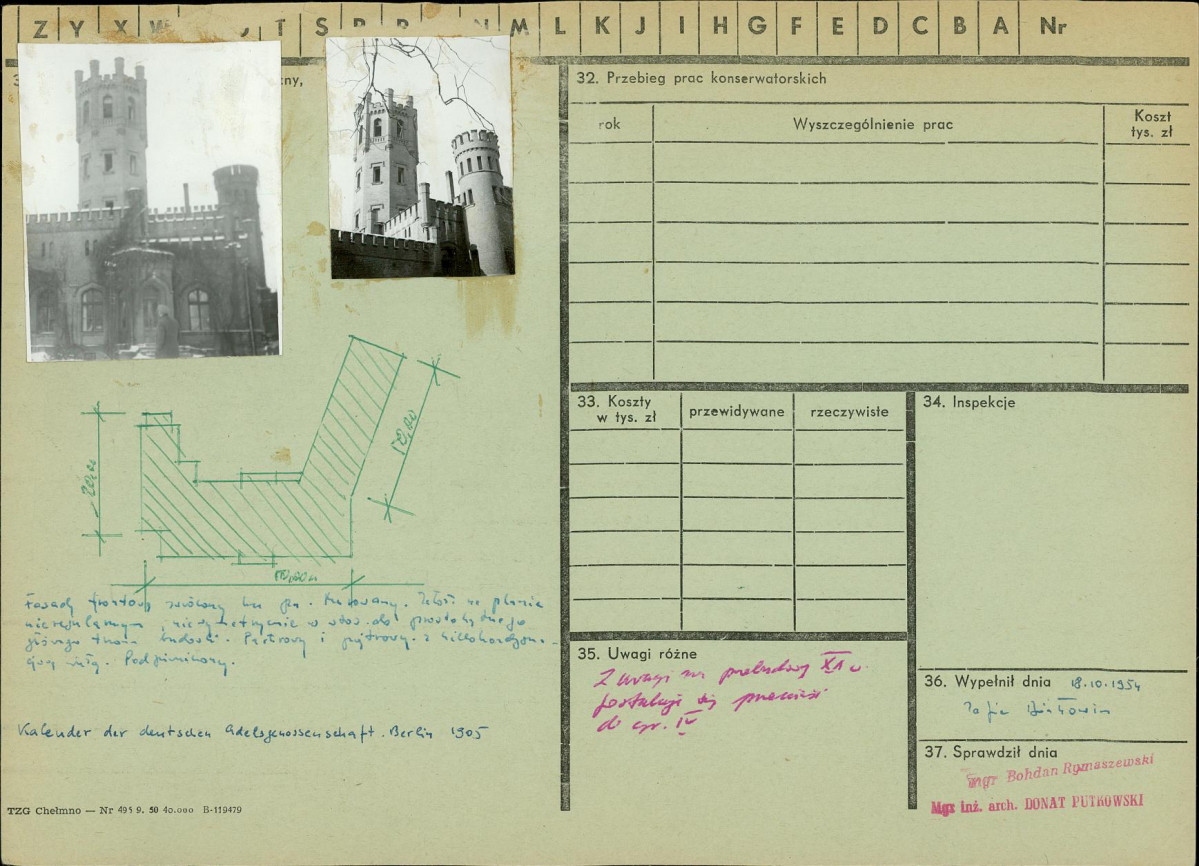 Z Y X W T S R P N M L K J I H G F E D C B A Nr
32. Przebieg prac konserwatorskich
rok Wyszczególnienie prac Koszt tys. zł
33. Koszty w tys. zł
przewidywane
rzeczywiste
34. Inspekcje
20,00
Fasadą frontową zwrócony ku pn. Murowany. Całość na planie
nieregularnym
głównego budowli. Parterowy i piętrowy z kilkokondygna-
cjową wieżą. Podpiwniczony.
Kalender der deutschen Adelsgenossenschaft. Berlin 1905
35. Uwagi różne
Z uwagi na przebudowy XIX w.
postuluje się przenieść
do gr. IV
36. Wypełnił dnia 18.10.1954
37. Sprawdził dnia
mgr Bohdan Rymaszewski
Mgr inż. arch. DONAT PUTKOWSKI
TZG Chełmno — Nr 495 9. 50 40.000 B-119479